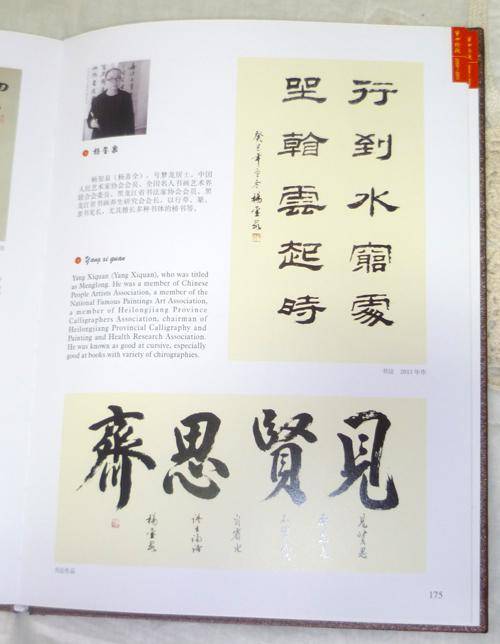 杨玺泉
杨玺泉（杨喜全），号梦龙居士，中国
人民艺术家协会会员、全国名人书画艺术界
联合会委员、黑龙江省书法家协会会员、黑
龙江省书画养生研究会会长，以行草、篆、
隶书见长，尤其擅长多种书体的榜书等。
Yang xi quan
Yang Xiquan (Yang Xiquan), who was titled
as Menglong. He was a member of Chinese
People Artists Association, a member of the
National Famous Paintings Art Association,
a member of Heilongjiang Province
Calligraphers Association, chairman of
Heilongjiang Provincial Calligraphy and
Painting and Health Research Association.
He was known as good at cursive, especially
good at books with variety of chirographies.
行到水窮處
坐看雲起時
書法 2013 年作
見賢思齊
見賢思
书法作品
175